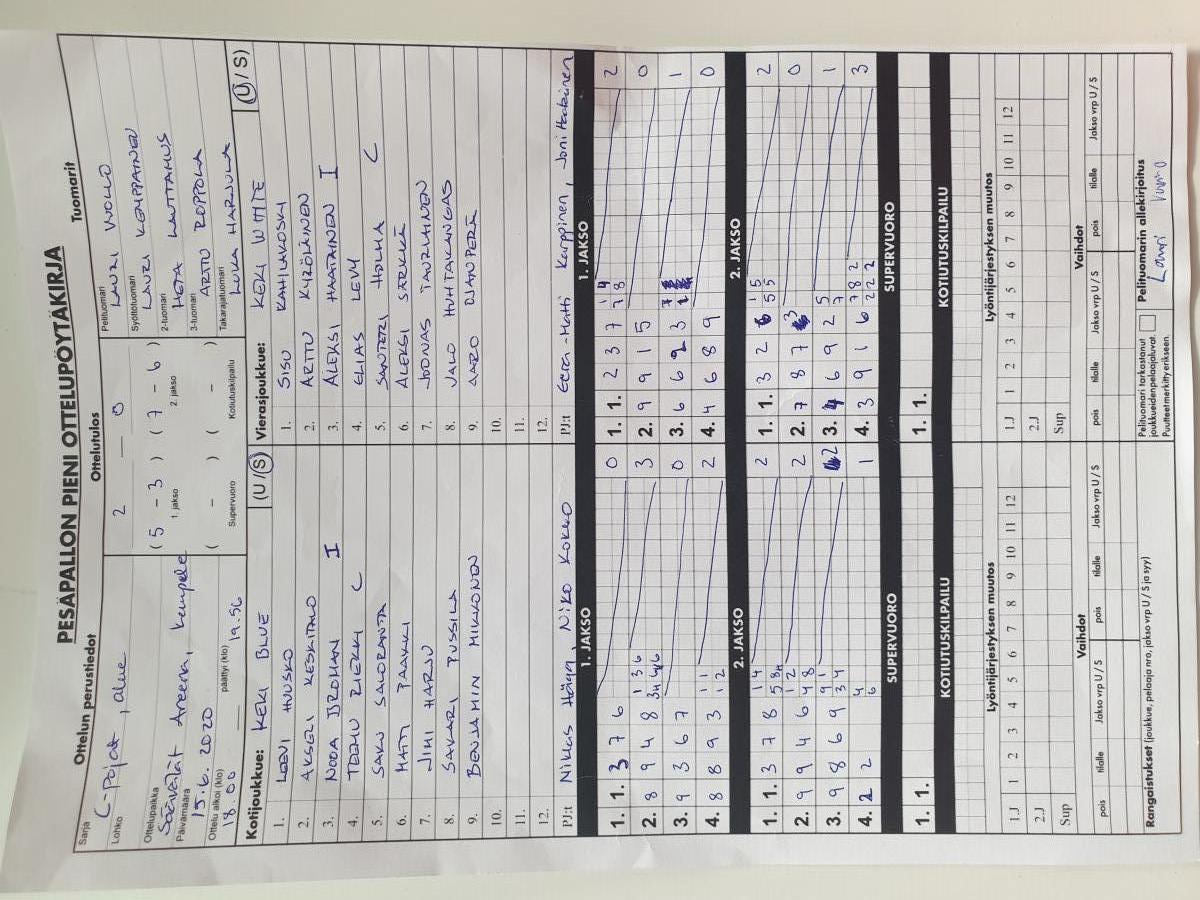 PESÄPALLON PIENI OTTELUPÖYTÄKIRJA
Ottelun perustiedot Ottelutulos Tuomarit
Sarja
C-pojat, alue
Lohko
Ottelupaikka
Säävälät Areena, kempele
Päivämäärä
15.6. 2020
Ottelu alkoi (klo) päättyi (klo)
18.00 19.56
2 — 0
( 5 - 3 ) ( 7 - 6 )
1. jakso 2. jakso
( - ) ( - )
Supervuoro Kotiutuskilpailu
Pelituomari
LAURI VUOLLO
Syöttötuomari
LAURI KEMPPAINEN
2-tuomari
HETA LAUTTAMUS
3-tuomari
ARTTU ROPPOLA
Takarajatuomari
LUKA HARJULA
Kotijoukkue: KEKI BLUE (U/S)
1. LEEVI HUUSKO
2. AKSELI KESKITALO
3. NOOA BROMAN I
4. TEEMU RIEKKI C
5. SAKU SALORANTA
6. MATTI PAAKKI
7. JIMI HARJU
8. SAKARI PUSSILA
9. BENJAMIN MIKKONEN
10.
11.
12.
PJ:t Niklas Niko KOKKO
Vierasjoukkue: KEKI WHITE (U/S)
1. SISU RAHILAKOSKI
2. ARTTU KYRÖLÄINEN
3. ALEKSI HAATAINEN I
4. ELIAS LEVY
5. SANTERI HOLMA C
6. ALEKSI SARKKÄ
7. JOONAS TAURIAINEN
8. JALO HUHTAKANGAS
9. AARO OJANPERÄ
10.
11.
12.
PJ:t Eera-Matti Karppinen, Joni Haatainen
1. JAKSO 1. JAKSO
1. 1. 3 7 6 0
2. 8 9 4 8 3
3. 9 3 6 7 0
4. 8 8 9 3 2
1. 1. 2 3 7 2
2. 9 9 1 5 0
3. 6 6 2 3 1
4. 4 6 8 9 0
2. JAKSO 2. JAKSO
1. 1. 3 7 8 2
2. 9 9 4 6 2
3. 9 8 6 9 2
4. 2 2 1
1. 1. 3 2 6 2
2. 7 8 7 3 0
3. 4 6 9 2 1
4. 3 9 1 6 3
SUPERVUORO SUPERVUORO
1. 1. 1. 1.
KOTIUTUSKILPAILU KOTIUTUSKILPAILU
Lyöntijärjestyksen muutos Lyöntijärjestyksen muutos
1.J 1 2 3 4 5 6 7 8 9 10 11 12 1.J 1 2 3 4 5 6 7 8 9 10 11 12
2.J 2.J
Sup Sup
Vaihdot Vaihdot
pois tilalle Jakso vrp U / S pois tilalle Jakso vrp U / S pois tilalle Jakso vrp U / S pois tilalle Jakso vrp U / S
Rangaistukset (joukkue, pelaaja nro, jakso vrp U / S ja syy)
Pelituomari tarkastanut
joukkueiden pelaajaluvat.
Puutteet merkitty erikseen.
Pelituomarin allekirjoitus
Lauri